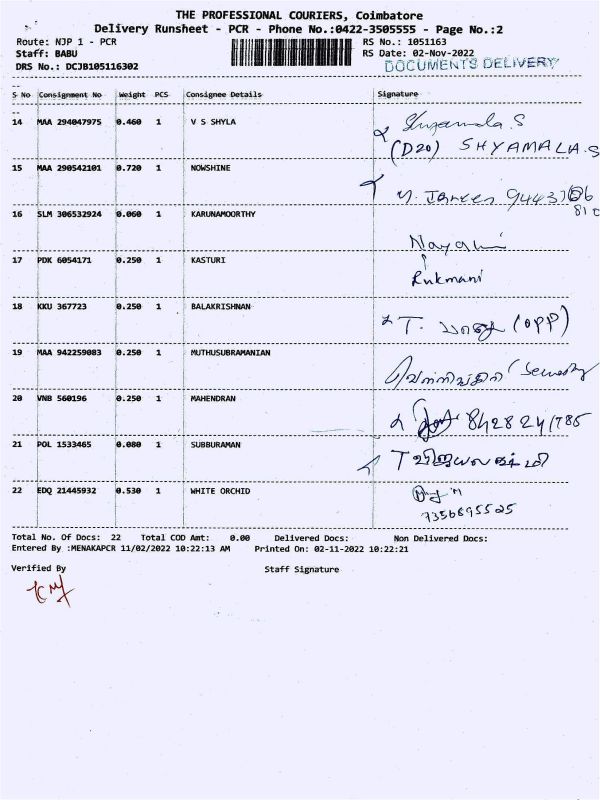 THE PROFESSIONAL COURIERS, Coimbatore
Delivery Runsheet - PCR - Phone No.:0422-3505555 - Page No.:2
Route: NJP 1 - PCR RS No.: 1051163
Staff: BABU RS Date: 02-Nov-2022
DRS No.: DCJB105116302 DOCUMENTS DELIVERY
S No Consignment No Weight PCS Consignee Details Signature
14 MAA 294047975 0.460 1 V S SHYLA Shyamala.S
(D20) SHYAMALA.S
15 MAA 290542101 0.720 1 NOWSHINE
16 SLM 306532924 0.060 1 KARUNAMOORTHY
17 PDK 6054171 0.250 1 KASTURI
Rukmani
18 KKU 367723 0.250 1 BALAKRISHNAN T. (OPP)
19 MAA 942259083 0.250 1 MUTHUSUBRAMANIAN
20 VNB 560196 0.250 1 MAHENDRAN
21 POL 1533465 0.080 1 SUBBURAMAN T விஜயலக்ஷ்மி
22 EDQ 21445932 0.530 1 WHITE ORCHID
7356695525
Total No. Of Docs: 22 Total COD Amt: 0.00 Delivered Docs: Non Delivered Docs:
Entered By :MENAKAPCR 11/02/2022 10:22:13 AM Printed On: 02-11-2022 10:22:21
Verified By Staff Signature